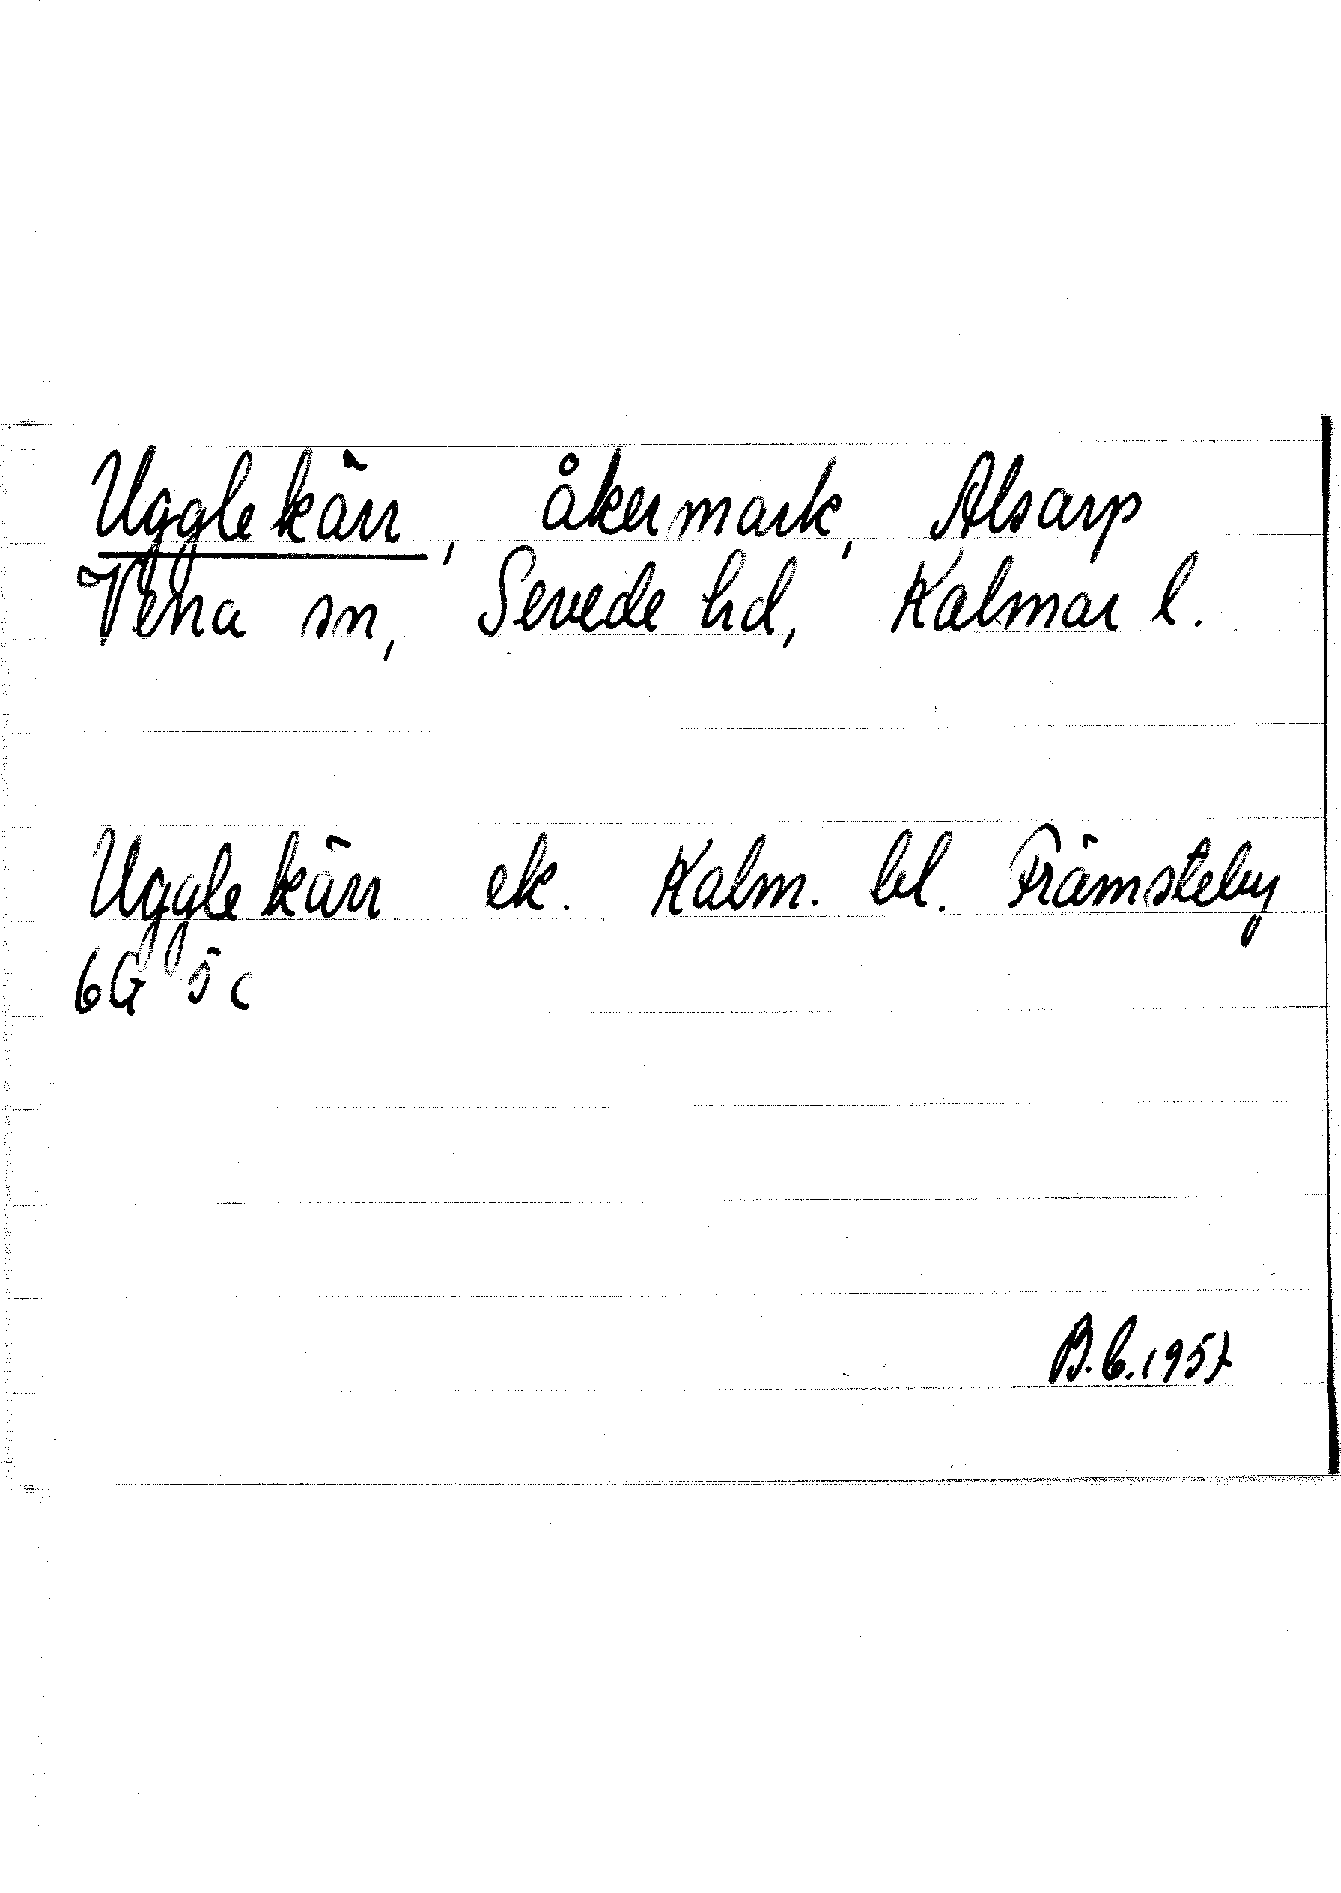 Ugglekärr, åkermark, Alsarp
Vena sn, Sevede hd, Kalmar l.
Ugglekärr ek. Kalm. bl. Främsteby
6G 5c
B.C. 1957